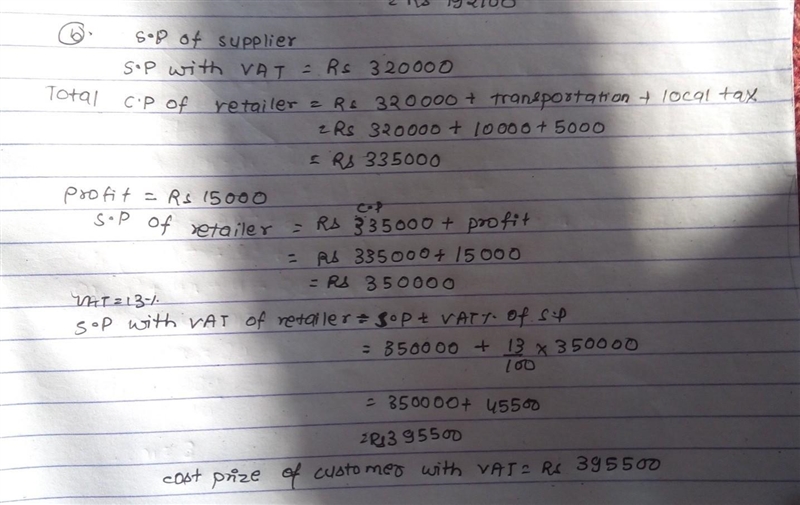 (b). S.P of supplier
S.P with VAT = Rs 320000
Total C.P of retailer = Rs 320000 + transportation + local tax
= Rs 320000 + 10000 + 5000
= Rs 335000
Profit = Rs 15000
C.P
S.P of retailer = Rs 335000 + profit
= Rs 335000 + 15000
= Rs 350000
VAT = 13%
S.P with VAT of retailer = S.P + VAT% of S.P
= 350000 + 13/100 × 350000
= 350000 + 45500
= Rs 395500
cost prize of customer with VAT = Rs 395500